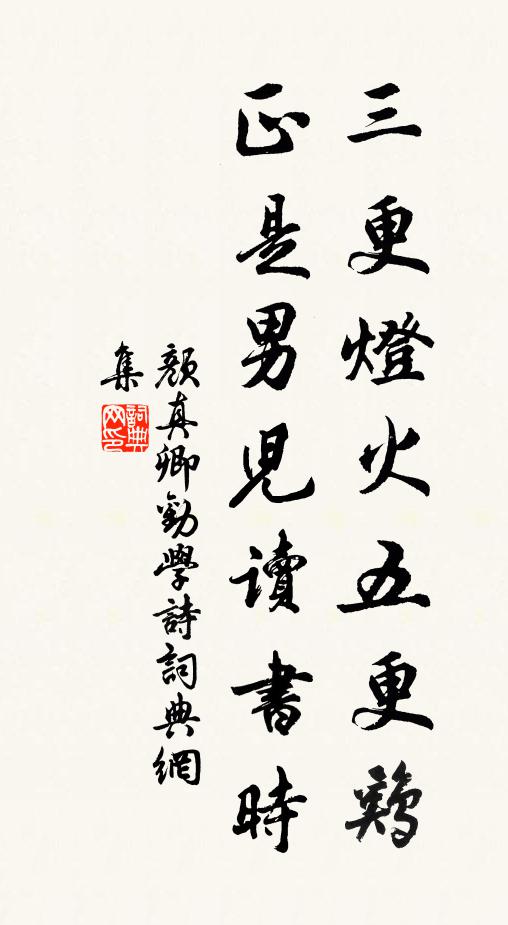 三更燈火五更鷄
正是男児讀書時
顏真卿勸學詩詞典網
集
詞典网印